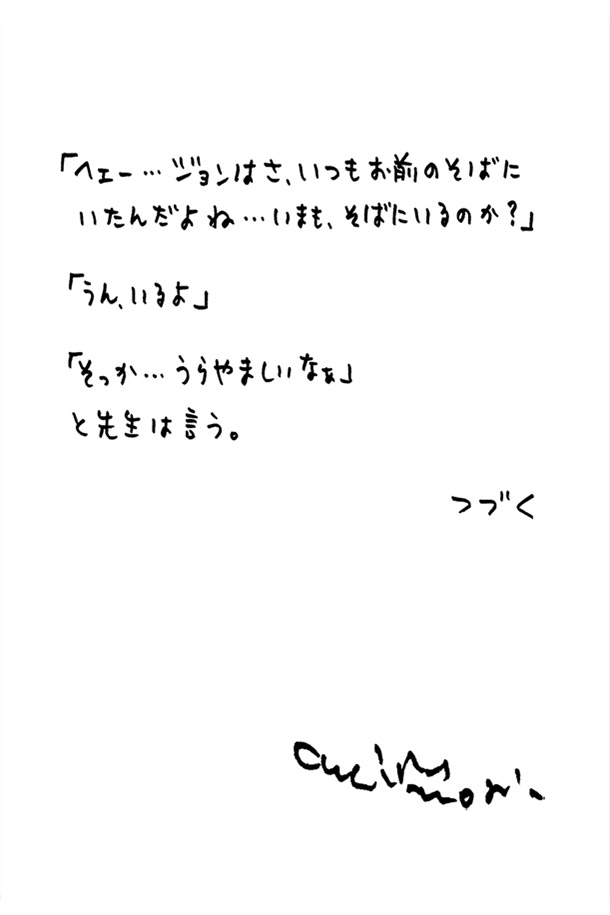 「ヘェー…ジョンはさ、いつもお前のそばに
いたんだよね…いまも、そばにいるのか?」
「うん、いるよ」
「そっか…うらやましいなぁ」
と先生は言う。
つづく